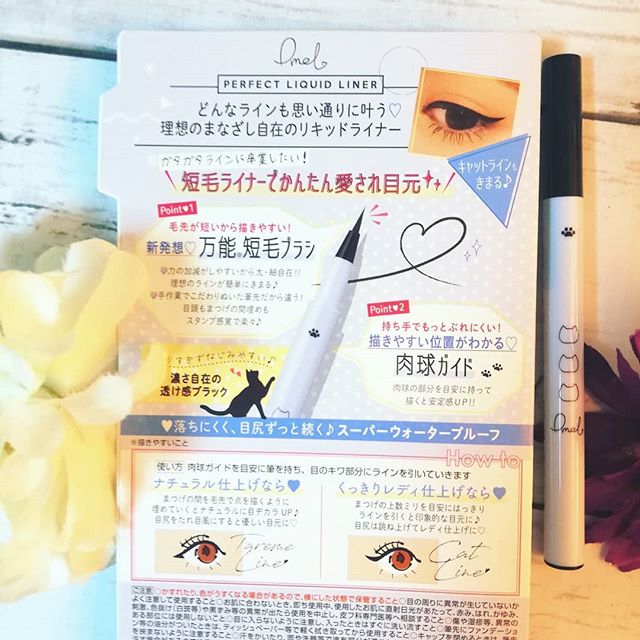 Pmel
PERFECT LIQUID LINER
どんなラインも思い通りに叶う♡
理想のまなざし自在のリキッドライナー
キャットラインも
きまる♪
ガタガタラインに卒業したい!
短毛ライナーでかんたん愛され目元
Point♥1
毛先が短いから描きやすい!
新発想♡万能※短毛ブラシ
♡力の加減がしやすいから太・細自在!!
理想のラインが簡単にきまる♪
♡手作業でこだわりぬいた筆先だから違う!
目頭もまつげの間埋めも
スタンプ感覚で楽々♪
Point♥2
持ち手でもっとぶれにくい!
描きやすい位置がわかる♡
肉球ガイド
肉球の部分を目安に持って
描くと安定感UP!!
すぎずなじみやすい♪
濃さ自在の
透け感ブラック
♥落ちにくく、目尻ずっと続く♪スーパーウォータープルーフ
※描きやすいこと
How-to
使い方 肉球ガイドを目安に筆を持ち、目のキワ部分にラインを引いていきます
ナチュラル仕上げなら♥
まつげの間を毛先で点を描くように
埋めていくとナチュラルに目ヂカラUP♪
目尻をたれ目風にすると優しい目元に♡
Tareme
Line
くっきりレディ仕上げなら♥
まつげの上数ミリを目安にはっきり
ラインを引くと印象的な目元に♪
目尻は跳ね上げてレディ仕上げに♡
Cat
Line
ご注意 ○かすれたり、色がうすくなる場合があるので、横にした状態で保管すること
Pmel